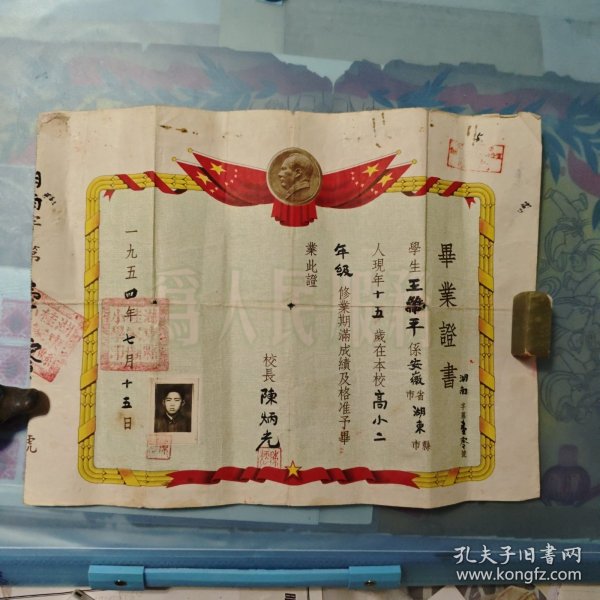 畢業證書
學生王榮平係安徽省市湖東縣市
人現年十五歲在本校高小二
年級修業期滿成績及格准予畢
業此證
校長陳炳光
一九五四年七月十五日
為人民服務
孔夫子旧书网
www.kongfz.com